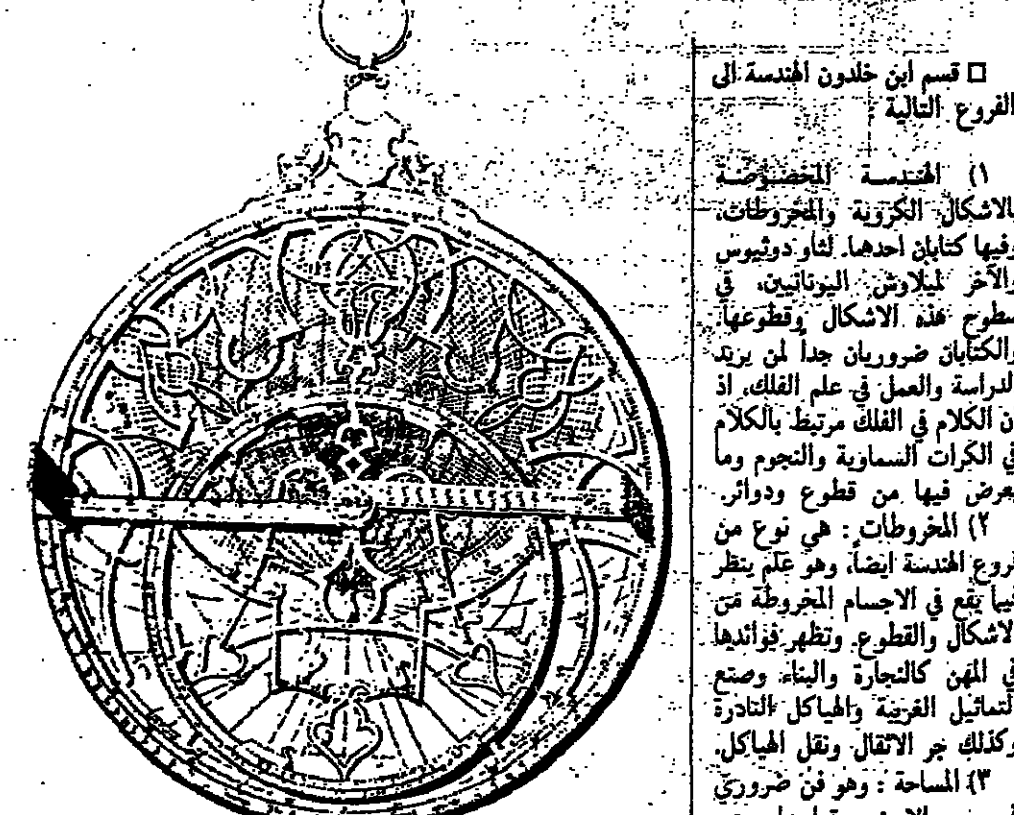 □ قسم ابن خلدون الهندسة الى
الفروع التالية :
١) الهندسة المخصوصة
بالاشكال الكروية والمخروطات،
وفيها كتابان احدهما لثاو دوثيوس
والآخر لميلاوش اليونانيين، في
سطوح هذه الاشكال وقطوعها.
والكتابان ضروريان جداً لمن يريد
الدراسة والعمل في علم الفلك، اذ
ان الكلام في الفلك مرتبط بالكلام
في الكرات السماوية والنجوم وما
يعرض فيها من قطوع ودوائر.
٢) المخروطات : هي نوع من
فروع الهندسة ايضاً، وهو علم ينظر
فيما يقع في الاجسام المخروطة من
الاشكال والقطوع وتظهر فوائدها
في المهن كالنجارة والبناء وصنع
التماثيل الغريبة والهياكل النادرة
وكذلك جر الاثقال ونقل الهياكل.
٣) المساحة : وهو فن ضروري